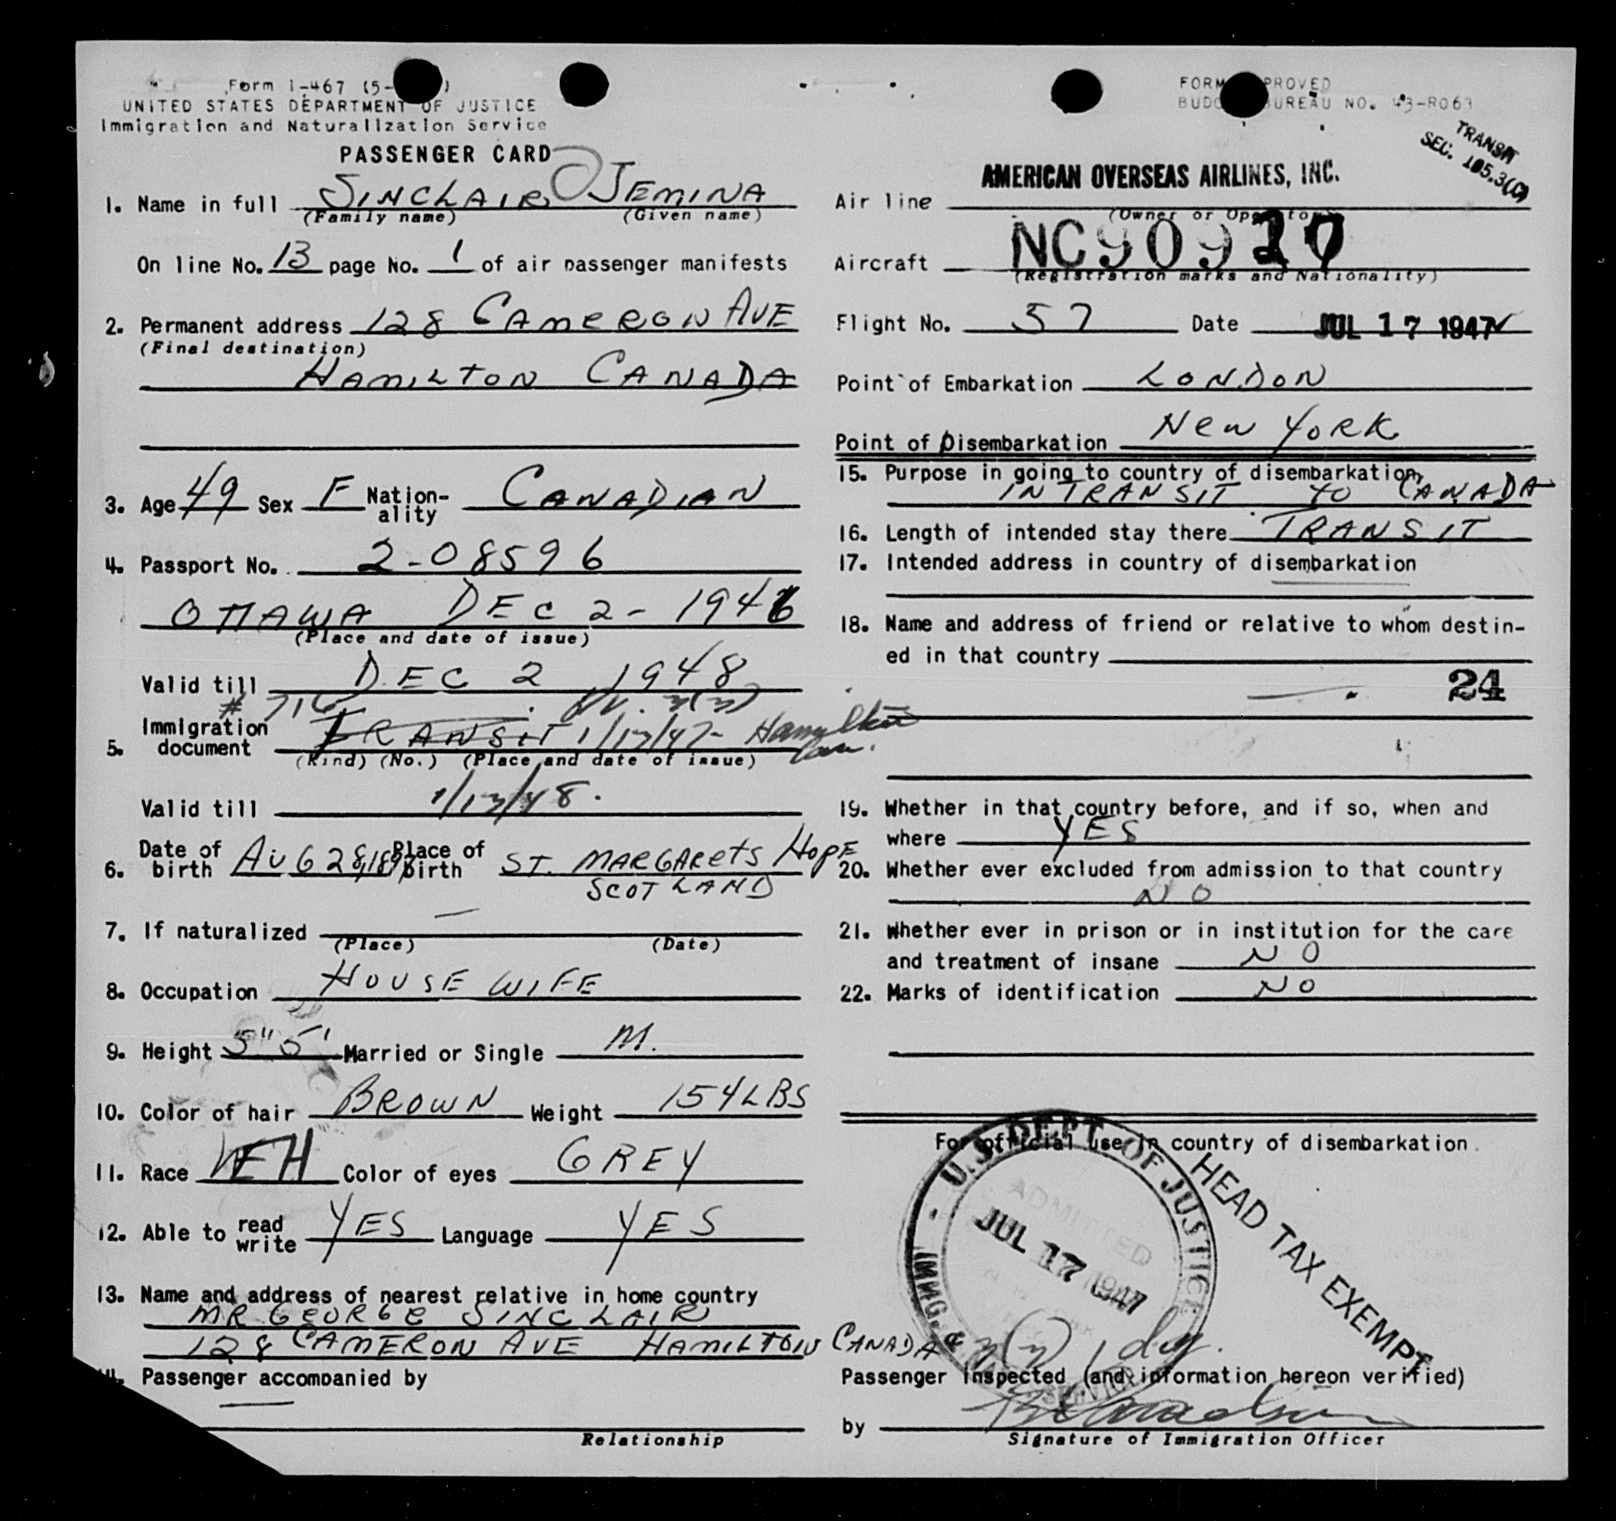 Form I-467 (5-
UNITED STATES DEPARTMENT OF JUSTICE
Immigration and Naturalization Service
PASSENGER CARD
1. Name in full SINCLAIR JEMINA
(Family name) (Given name)
On line No. 13 page No. 1 of air passenger manifests
2. Permanent address 128 CAMERON AVE
(Final destination)
HAMILTON CANADA
3. Age 49 Sex F Nation-ality CANADIAN
4. Passport No. 2-08596
OTTAWA DEC 2- 1946
(Place and date of issue)
Valid till DEC 2 1948
# 716
5. Immigration document TRANSIT 1/13/47- Hamilton Can.
(Kind) (No.) (Place and date of issue)
Valid till 1/13/48.
6. Date of birth AUG 28, 1897 Place of birth ST. MARGARETS HOPE
SCOTLAND
7. If naturalized —
(Place) (Date)
8. Occupation HOUSE WIFE
9. Height 5" 5' Married or Single M.
10. Color of hair BROWN Weight 154 LBS
11. Race Color of eyes GREY
12. Able to read write YES Language YES
13. Name and address of nearest relative in home country
MR GEORGE SINCLAIR
128 CAMERON AVE HAMILTON CANADA
Passenger accompanied by
—
Relationship
FORM APPROVED
BUDGET BUREAU NO. 43-R063
TRANSIT
SEC. 105.3(C)
AMERICAN OVERSEAS AIRLINES, INC.
Air line
(Owner or Operator)
Aircraft NC90927
(Registration marks and Nationality)
Flight No. 57 Date JUL 17 1947
Point of Embarkation LONDON
Point of Disembarkation NEW YORK
15. Purpose in going to country of disembarkation
IN TRANSIT TO CANADA
16. Length of intended stay there TRANSIT
17. Intended address in country of disembarkation
18. Name and address of friend or relative to whom destin-
ed in that country
24
19. Whether in that country before, and if so, when and
where YES
20. Whether ever excluded from admission to that country
NO
21. Whether ever in prison or in institution for the care
and treatment of insane NO
22. Marks of identification NO
For official use in country of disembarkation.
U.S. DEPT. OF JUSTICE
ADMITTED
JUL 17 1947
IMMG. &
SERVICE
HEAD TAX EXEMPT
Passenger inspected (and information hereon verified)
by
Signature of Immigration Officer